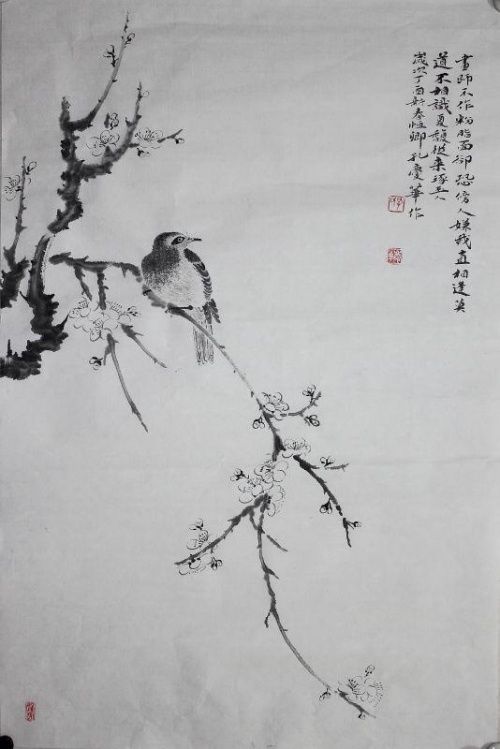 畫師不作粉脂面卻恐傍人嫌我直相逢莫
道不相識夏馥從來琢玉人
歲次丁酉新春恒卿孔慶華作